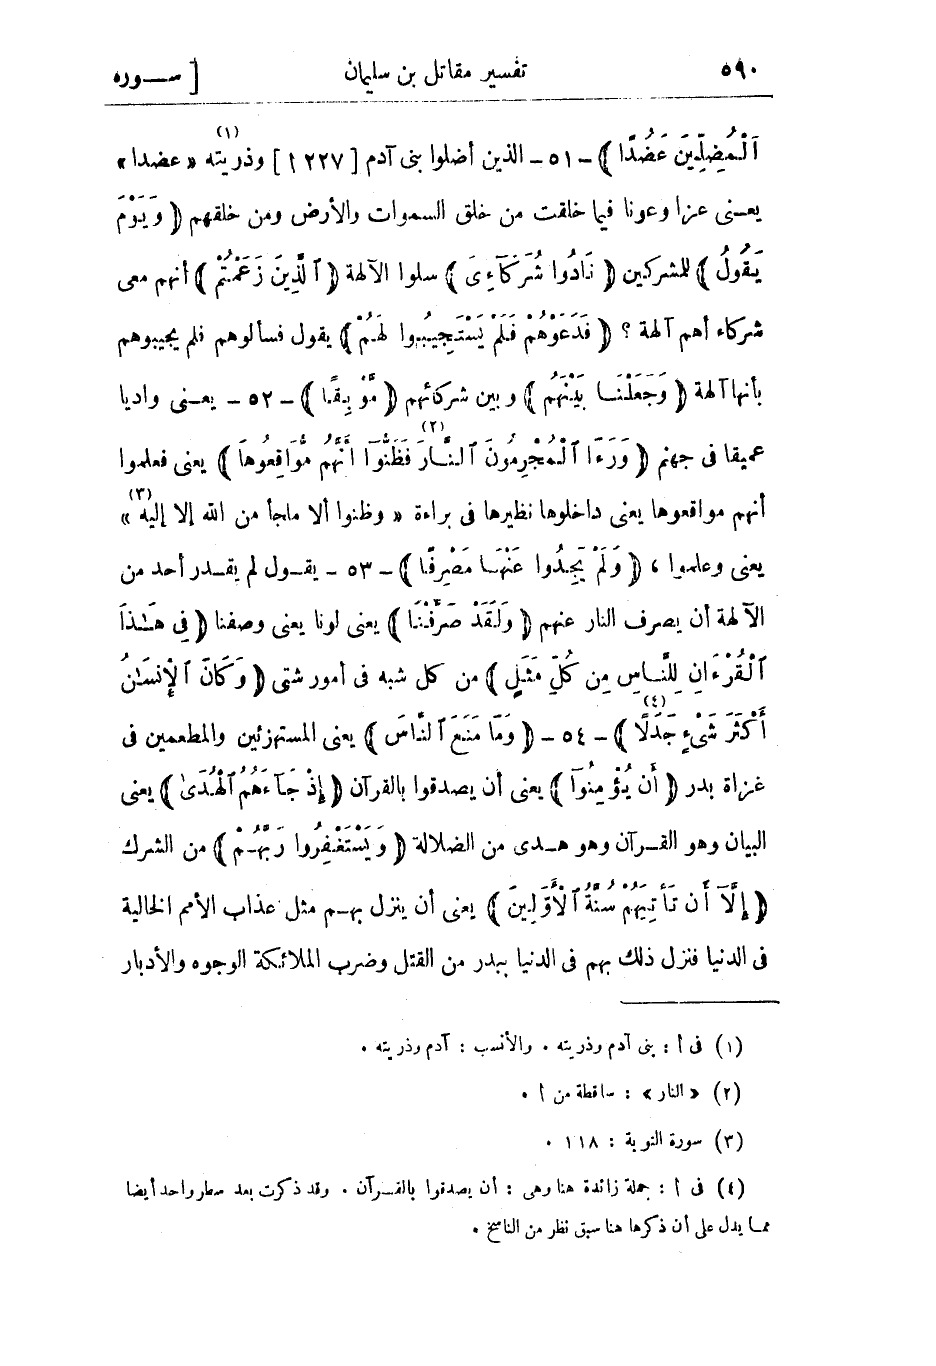 ٥٩٠ تفسير مقاتل بن سليمان [ ســوره
ٱلْمُضِلِّينَ عَضُدًا ﴾ – ٥١ – الذين أضلوا بنى آدم [ ٢٢٧ أ ] وذريته (١) « عضدا »
يعــنى عزا وعونا فيما خلقت من خلق السموات والأرض ومن خلقهم ﴿ وَيَوْمَ
يَقُولُ ﴾ للمشركين ﴿ نَادُوا شُرَكَآءِىَ ﴾ سلوا الآلهة ﴿ ٱلَّذِينَ زَعَمْتُمْ ﴾ أنهم معى
شركاء أهم آلهة ؟ ﴿ فَدَعَوْهُمْ فَلَمْ يَسْتَجِيبُوا لَهُمْ ﴾ يقول فسألوهم فلم يجيبوهم
بأنها آلهة ﴿ وَجَعَلْنَــا بَيْنَهُم ﴾ وبين شركائهم ﴿ مَّوْبِقًا ﴾ – ٥٢ – يعــنى واديا
عميقا فى جهنم ﴿ وَرَءَا ٱلْمُجْرِمُونَ ٱلنَّــارَ (٢) فَظَنُّوٓا أَنَّهُم مُّوَاقِعُوهَا ﴾ يعنى فعلموا
أنهم مواقعوها يعنى داخلوها نظيرها فى براءة « وظنوا ألا ملجأ من الله إلا إليه (٣) »
يعنى وعلموا ، ﴿ وَلَمْ يَجِدُوا عَنْهَــا مَصْرِفًا ﴾ – ٥٣ – يقــول لم يقــدر أحد من
الآلهة أن يصرف النار عنهم ﴿ وَلَقَدْ صَرَّفْنَا ﴾ يعنى لونا يعنى وصفنا ﴿ فِى هَـٰذَا
ٱلْقُرْءَانِ لِلنَّــاسِ مِن كُلِّ مَثَلٍ ﴾ من كل شبه فى أمور شتى ﴿ وَكَانَ ٱلْإِنسَـٰنُ
أَكْثَرَ شَىْءٍ جَدَلًا (٤) ﴾ – ٥٤ – ﴿ وَمَا مَنَعَ ٱلنَّاسَ ﴾ يعنى المستهزئين والمطعمين فى
غزاة بدر ﴿ أَن يُؤْمِنُوٓا ﴾ يعنى أن يصدقوا بالقرآن ﴿ إِذْ جَآءَهُمُ ٱلْهُدَىٰ ﴾ يعنى
البيان وهو القــرآن وهو هــدى من الضلالة ﴿ وَيَسْتَغْفِرُوا رَبَّهُــمْ ﴾ من الشرك
﴿ إِلَّآ أَن تَأْتِيَهُمْ سُنَّةُ ٱلْأَوَّلِينَ ﴾ يعنى أن ينزل بهــم مثل عذاب الأمم الخالية
فى الدنيا فنزل ذلك بهم فى الدنيا ببدر من القتل وضرب الملائكة الوجوه والأدبار
(١) فى أ : بنى آدم وذريته . والأنسب : آدم وذريته .
(٢) « النار » : ساقطة من أ .
(٣) سورة التوبة : ١١٨ .
(٤) فى أ : جملة زائدة هنا وهى : أن يصدقوا بالقــرآن . وقد ذكرت بعد سطر واحد أيضا
ممــا يدل على أن ذكرها هنا سبق نظر من الناسخ .